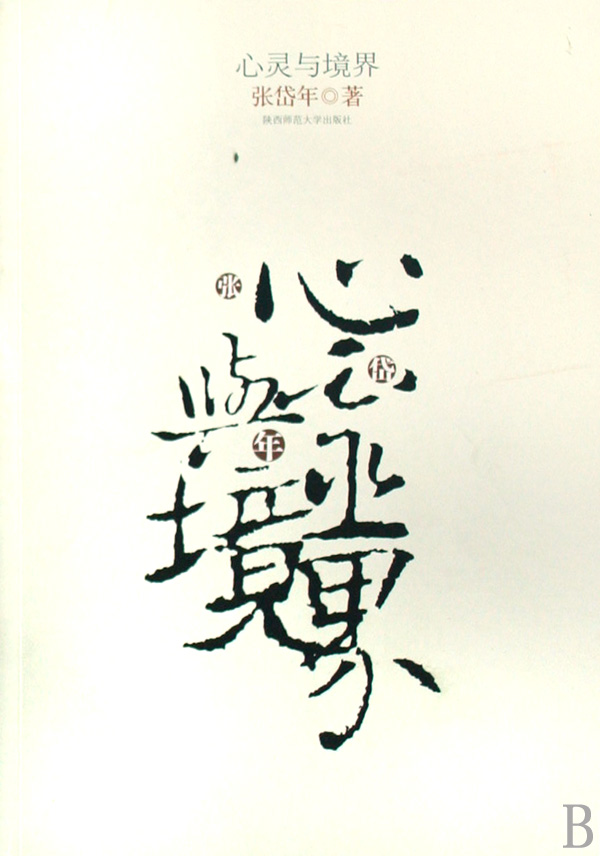 心灵与境界
张岱年◎著
陕西师范大学出版社
张
心靈
岱
與
年
境界
B